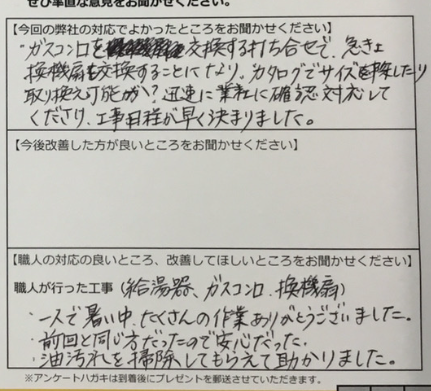 ぜひ率直な意見をお聞かせください。
【今回の弊社の対応でよかったところをお聞かせください】
ガスコンロを交換する打ち合せで、急きょ
換機扇も交換することになり。カタログでサイズを探したり
取り換え可能か？迅速に業社に確認対応して
くださり、工事日程が早く決まりました。
【今後改善した方が良いところをお聞かせください】
【職人の対応の良いところ、改善してほしいところをお聞かせください】
職人が行った工事（給湯器、ガスコンロ、換機扇）
・一人で暑い中、たくさんの作業ありがとうございました。
・前回と同じ方だったので安心だった。
・油汚れを掃除してもらえて助かりました。
※アンケートハガキは到着後にプレゼントを郵送させていただきます。